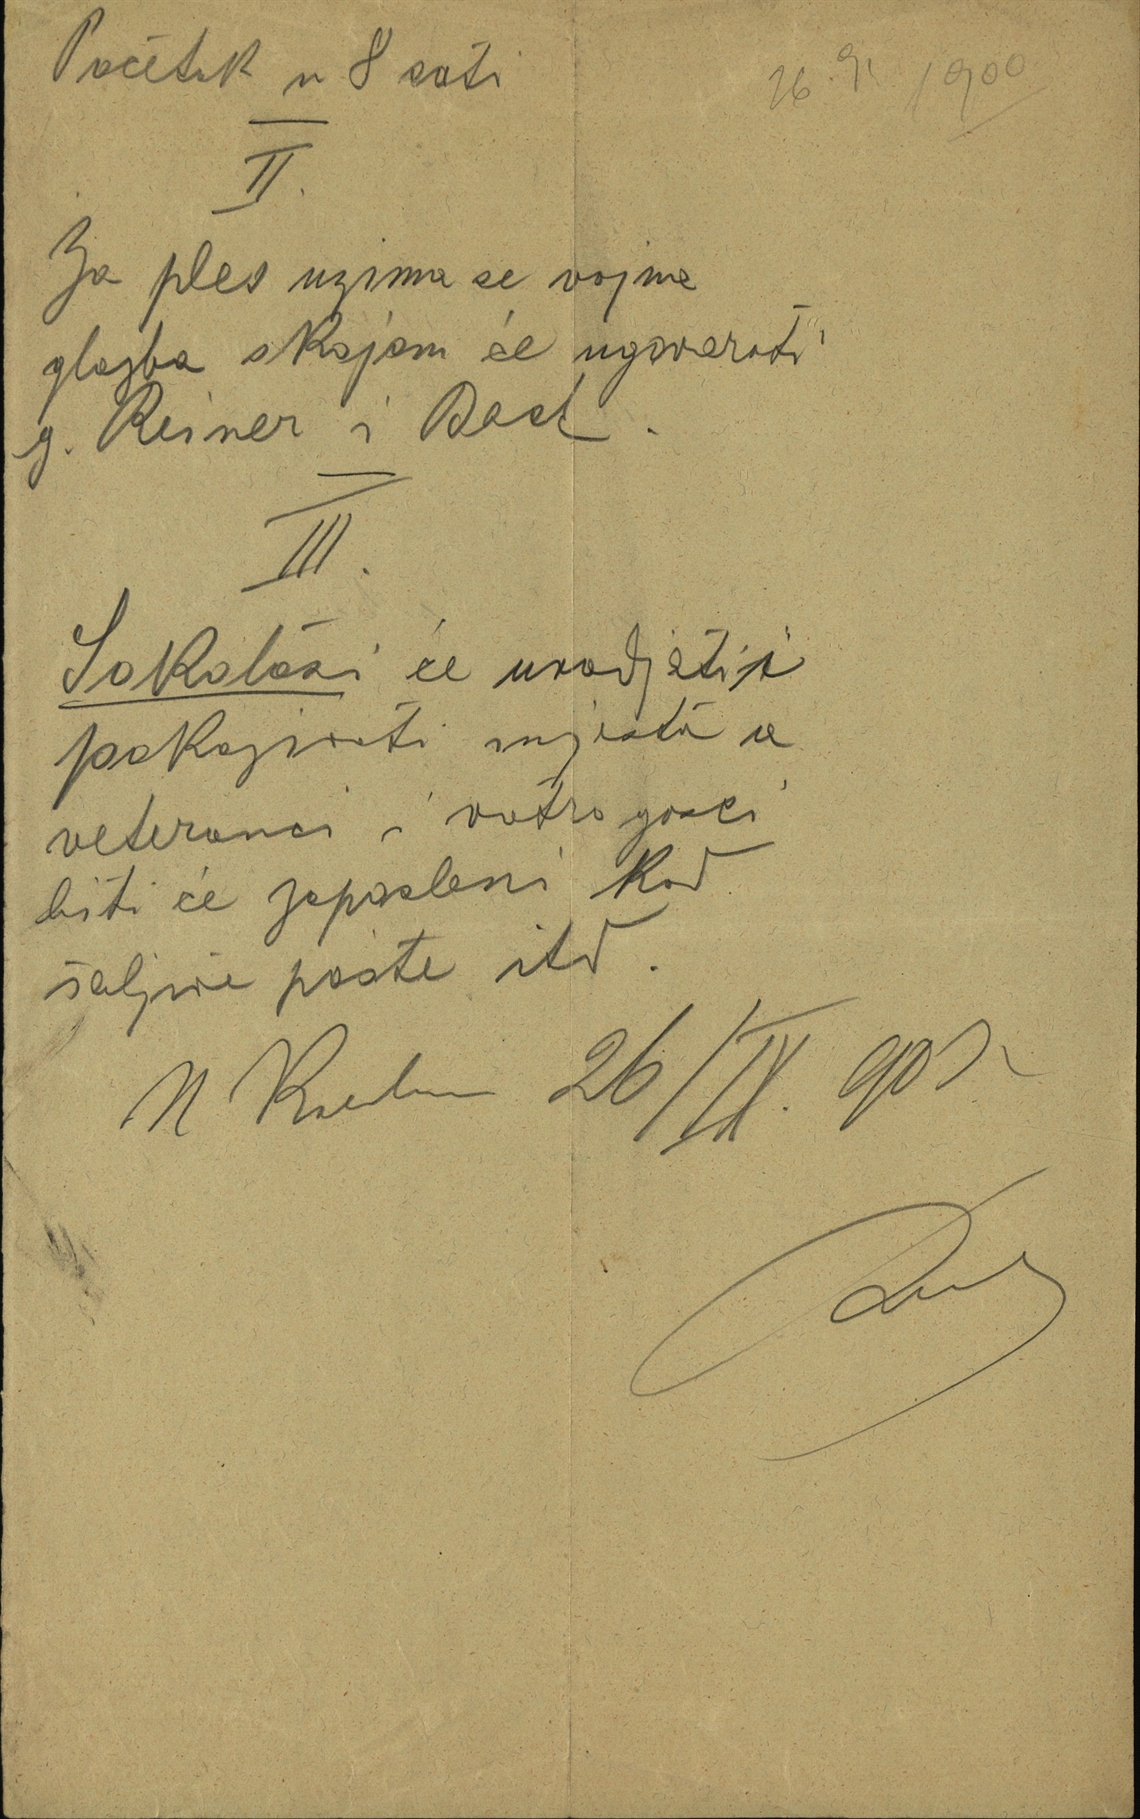 Početak u 8 sati
26. 9. 1900
II.
Za ples uzima se vojna
glazba s kojom će ugovarati
g. Reiner i Bast.
III.
Sokolaši će uvadjati i
pokazivati mjesta a
veteranci i vatrogasci
biti će zaposleni kod
šaljive pošte itd.
U 26/IX. 900